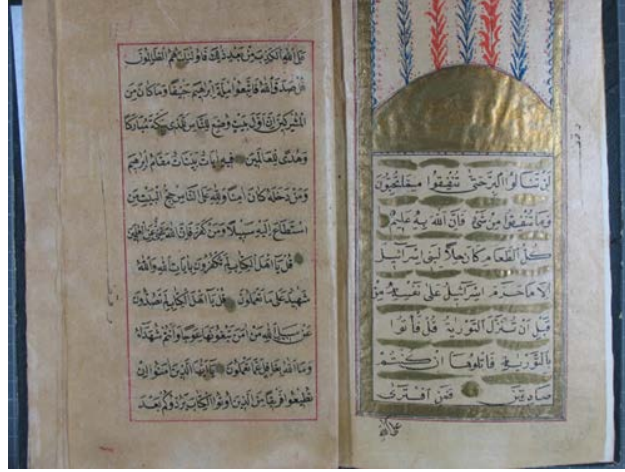 لن تنالوا البر حتى تنفقوا مما تحبون
وما تنفقوا من شئ فان الله به عليم
كل الطعام كان حلا لبنى اسرائيل
الا ما حرم اسرائيل على نفسه من
قبل ان تنزل التورية قل فأتوا
بالتورية فاتلوها ان كنتم
صادقين فمن افترى
على الله
على الله الكذب من بعد ذلك فاولئك هم الظالمون
قل صدق الله فاتبعوا ملة ابرهيم حنيفا وما كان من
المشركين ان اول بيت وضع للناس للذى ببكة مباركا
وهدى للعالمين فيه ايات بينات مقام ابرهيم
ومن دخله كان امنا ولله على الناس حج البيت من
استطاع اليه سبيلا ومن كفر فان الله غنى عن العالمين
قل يا اهل الكتاب لم تكفرون بايات الله والله
شهيد على ما تعملون قل يا اهل الكتاب لم تصدون
عن سبيل الله من امن تبغونها عوجا وانتم شهداء
وما الله بغافل عما تعملون يا ايها الذين امنوا ان
تطيعوا فريقا من الذين اوتوا الكتاب يردوكم بعد